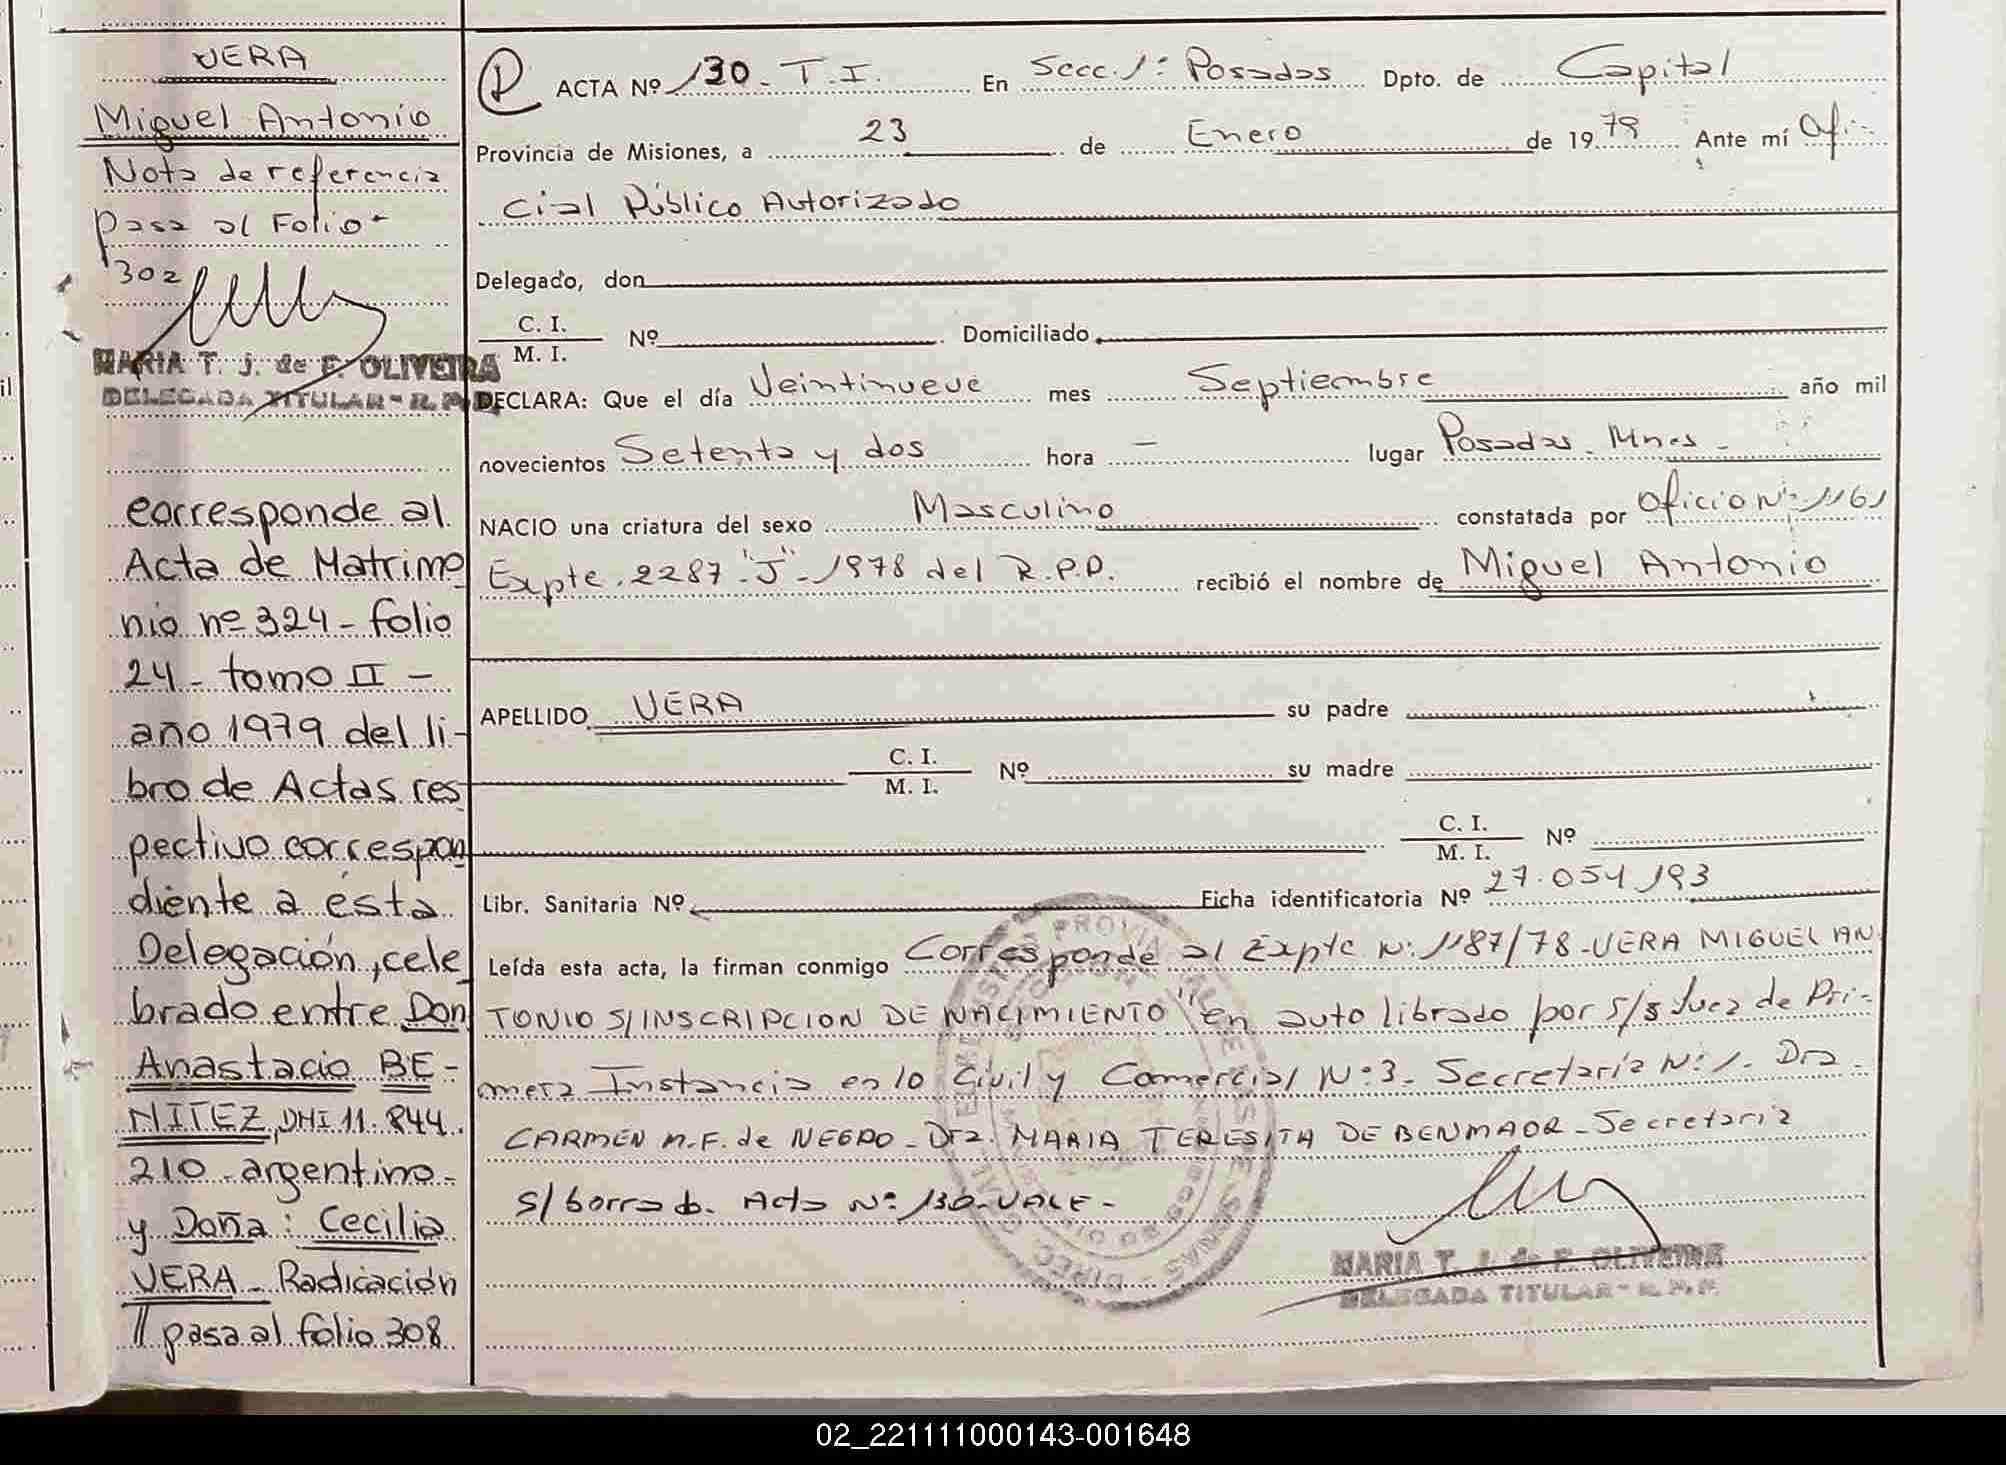 VERA
Miguel Antonio
Nota de referencia
pasa al Folio-
302
MARIA T. J. de F. OLIVEIRA
DELEGADA TITULAR - R. P. P.
corresponde al
Acta de Matrimo
nio nº 324 - folio
24 - tomo II -
año 1979 del li-
bro de Actas res
pectivo correspon
diente a ésta
Delegación, cele
brado entre Don
Anastacio BE-
NITEZ, DNI 11.844.
210 - argentino -
y Doña: Cecilia
VERA - Radicación
// pasa al folio 308
ACTA Nº 130 - T.I. En Secc. 1: Posadas Dpto. de Capital
Provincia de Misiones, a 23 de Enero de 1979 Ante mí Ofi-
cial Público Autorizado
Delegado, don
C. I. / M. I. Nº Domiciliado
DECLARA: Que el día Veintinueve mes Septiembre año mil
novecientos Setenta y dos hora - lugar Posadas. Mnes -
NACIO una criatura del sexo Masculino constatada por Oficio Nº 1161
Expte. 2287 - "J" - 1978 del R.P.P. recibió el nombre de Miguel Antonio
APELLIDO VERA su padre
C. I. / M. I. Nº su madre
C. I. / M. I. Nº
Libr. Sanitaria Nº Ficha identificatoria Nº 27.054.193
Leída esta acta, la firman conmigo Corresponde al Expte N: 1187/78 - VERA MIGUEL AN
TONIO S/INSCRIPCION DE NACIMIENTO" en auto librado por S/s Juez de Pri-
mera Instancia en lo Civil y Comercial Nº 3 - Secretaría Nº 1. Dra
CARMEN M.F. de NEGRO - Dra. MARIA TERESITA DE BENMAOR - Secretaria
s/ borrado. Acta Nº 130 - VALE -
MARIA T. J. de F. OLIVEIRA
DELEGADA TITULAR - R. P. P.
02_221111000143-001648